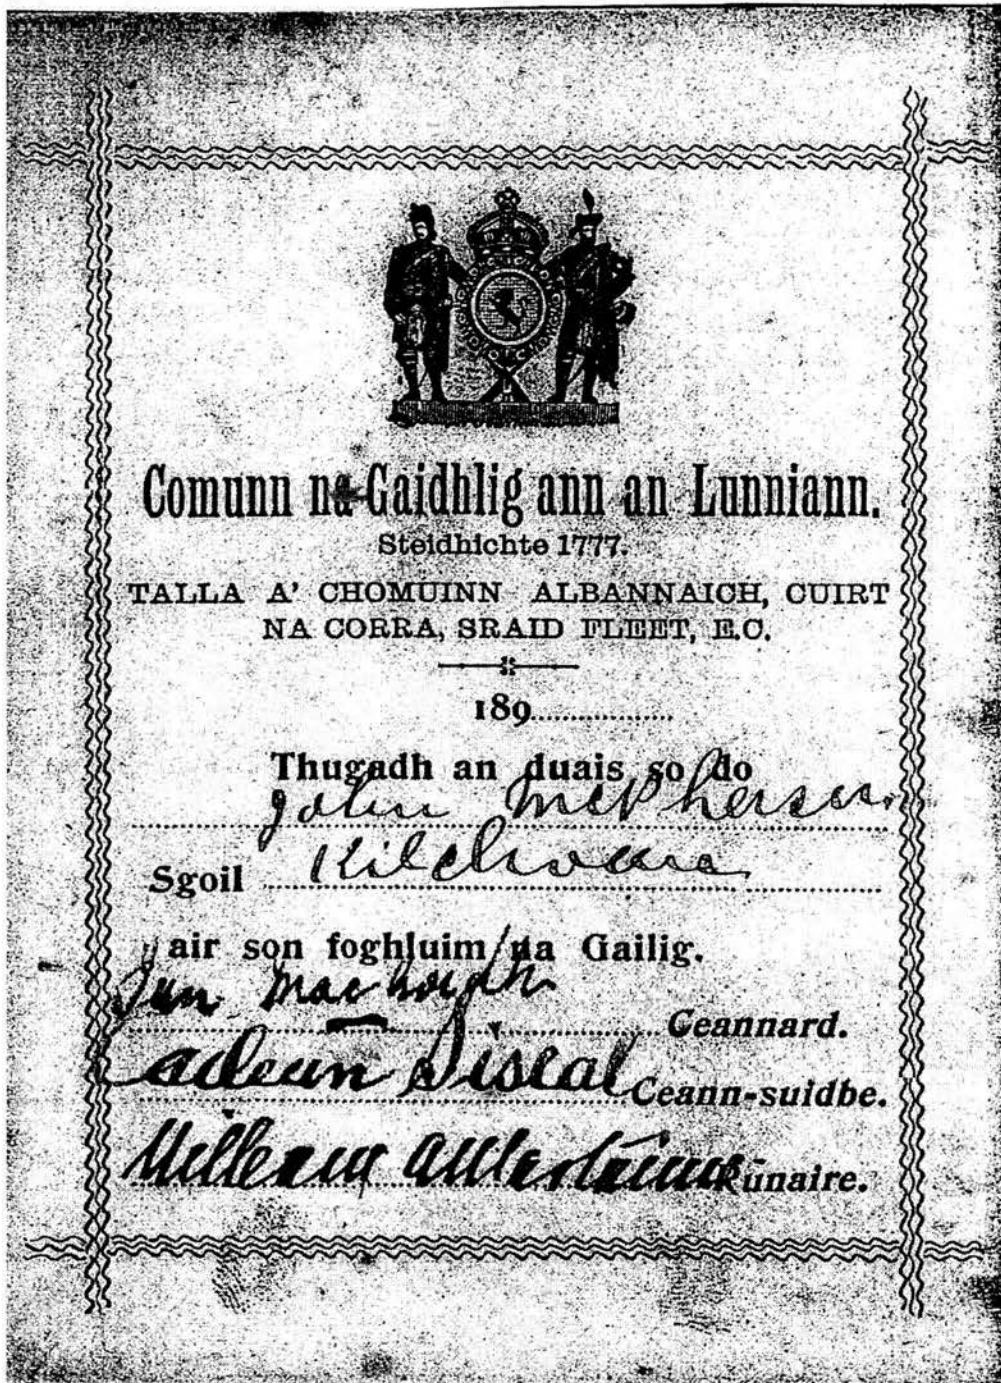 Comunn na Gaidhlig ann an Lunniann.
Steidhichte 1777.
TALLA A' CHOMUINN ALBANNAICH, CUIRT
NA CORRA, SRAID FLEET, E.C.
189
Thugadh an duais so do
John McPherson
Sgoil Kilchoan
air son foghluim na Gailig.
Ceannard.
Siseal Ceann-suidhe.
Uilleam Rùnaire.